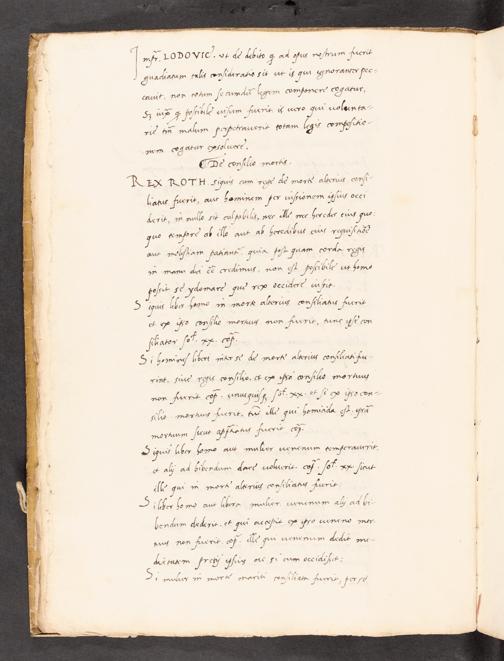 Impr̃. LODOVIC̃. ut de debito q̃ ad opus nostrum fuerit
guadiatum talis consideratio sit ut is qui ignoranter pec-
cavit, non totum secundum legem componere cogatur,
Sz iuxᵃ q̃ possibile visum fuerit, is vero qui volunta-
rie tm̃ malum perpetraverit totam legis compositio-
nem cogatur exsolvere.
De consilio mortis.
REX ROTH. Siquis cum rege de morte alterius consi-
liatus fuerit, aut hominem per iussionem ipsius occi
derit, in nullo sit culpabilis, nec ille nec heredes eius quo
quo tempore ab illo aut ab heredibus eius
aut molestiam patiantᷣ, quia post quam corda regis
in manu dei eẽ credimus, non est possibile ut homo
possit se ydoniare quẽ rex occidere iussit.
Siquis liber homo in morte alterius consiliatus fuerit
et ex ipso consilio mortuus non fuerit, tunc ipse con
siliator sol̃. xx. cop̃.
Si homines liberi inter se de morte alterius consiliati fu-
rint, sive regis consilio, et ex ipso consilio mortuus
non fuerit cop̃. unusquisq; sol̃. xx. et si ex ipso con-
silio mortuus fuerit, tũc ille qui homicida est ipsũ
mortuum sicut app̃tiatus fuerit cop̃.
Siquis liber homo aut mulier venenum temperaverit,
et alij ad bibendum dare voluerit cop̃. sol̃. xx sicut
ille qui in morte alterius consiliatus fuerit.
Si liber homo aut libera mulier venenum alij ad bi-
bendum dederit, et qui accepit ex ipso veneno mor
tuus non fuerit cop̃. ille qui venenum dedit me-
dietatem pretij ipsius ac si eum occidisset.
Si mulier in morte mariti consiliata fuerit, per se